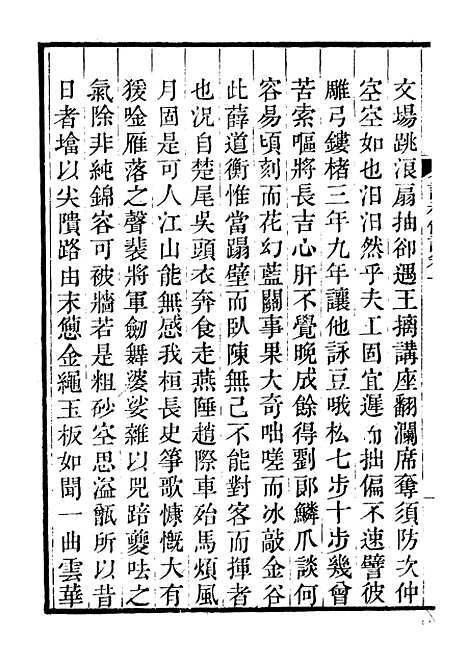 文場跳浪扇抽卻遇王摛講座翻瀾席奪須防次仲
空空如也汨汨然乎夫工固宜遲勿拙偏不速譬彼
雕弓鏤楮三年九年讓他詠豆哦松七步十步幾曾
苦索嘔將長吉心肝不覺晚成餘得劉郎鱗爪談何
容易頃刻而花幻藍關事果大奇咄嗟而冰敲金谷
此薛道衡惟當蹋壁而臥陳無己不能對客而揮者
也況自楚尾吳頭衣奔食走燕陲趙際車殆馬煩風
月固是可人江山能無感我桓長史箏歌慷慨大有
猨唫雁落之聲裴將軍劒舞婆娑雜以兕踣夔呿之
氣除非純錦容可被牆若是粗砂空思溢甑所以昔
日者墖以尖隤路由末憊金繩玉板如聞一曲雲華